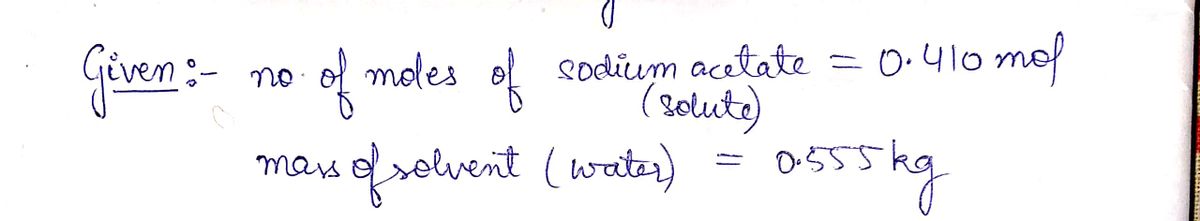 Given :- no. of moles of sodium acetate = 0.410 mol
(solute)
mass of solvent (water) = 0.555 kg